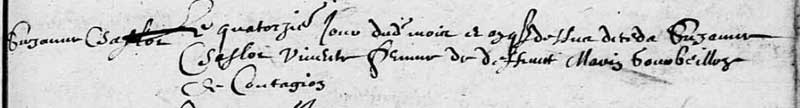 Suzanne Chaslot Le quatorzie Jour dud mois et an q dessus deceda Suzanne
Chaslot vivente femme de deffunct Marin Gourbeillon
De Contagion